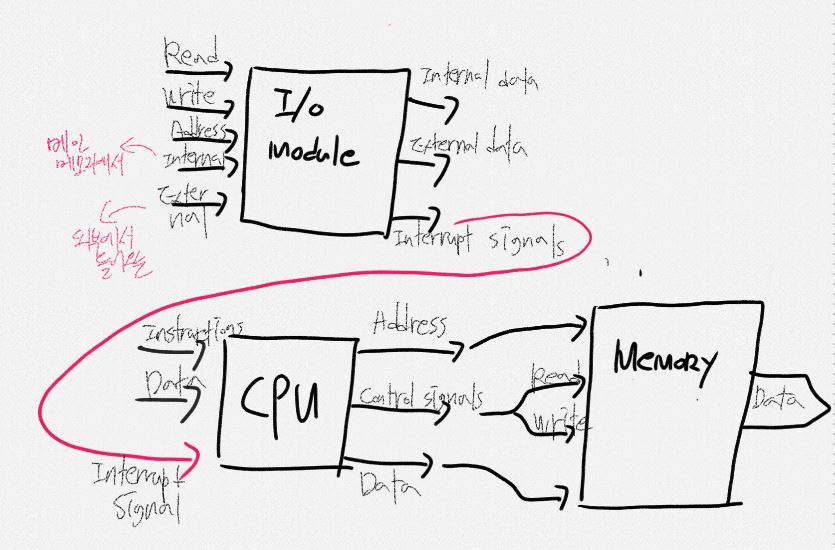 Read
Write
Address
Internal
Exter
nal
메인
메모리에서
외부에서
들어오는
I/o
Module
Internal data
External data
Interrupt signals
Instructions
Data
Interrupt
Signal
CPU
Address
Control signals
Data
Read
Write
Memory
Data